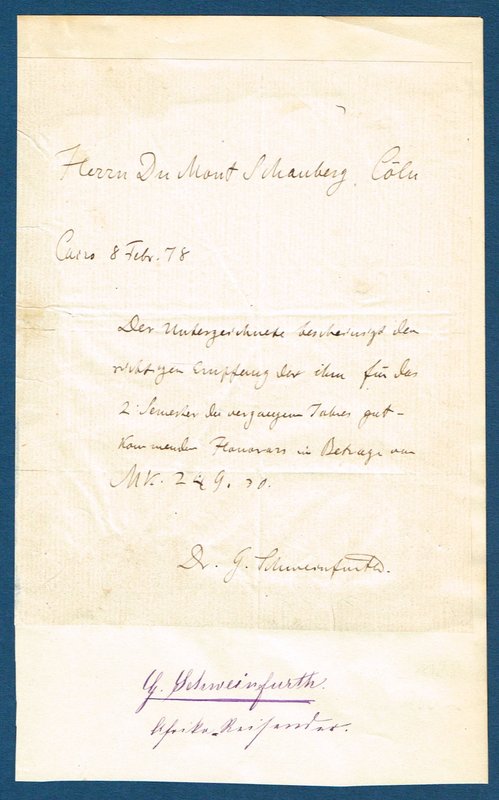 Herrn Du Mont Schauberg, Cöln
Cairo 8 Febr. 78
Der Unterzeichnete bescheinigt den
richtigen Empfang des ihm für das
2. Semester des vergangen Jahres gut-
kommenden Honorars im Betrage von
Mk. 249.
Dr. G. Schweinfurth.
G. Schweinfurth.
Afrika-Reisender.